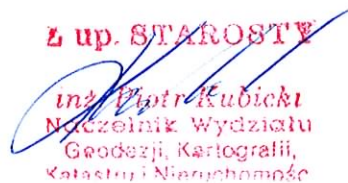 Z up. STAROSTY
inż. Piotr Kubicki
Naczelnik Wydziału
Geodezji, Kartografii,
Katastru i Nieruchomośc